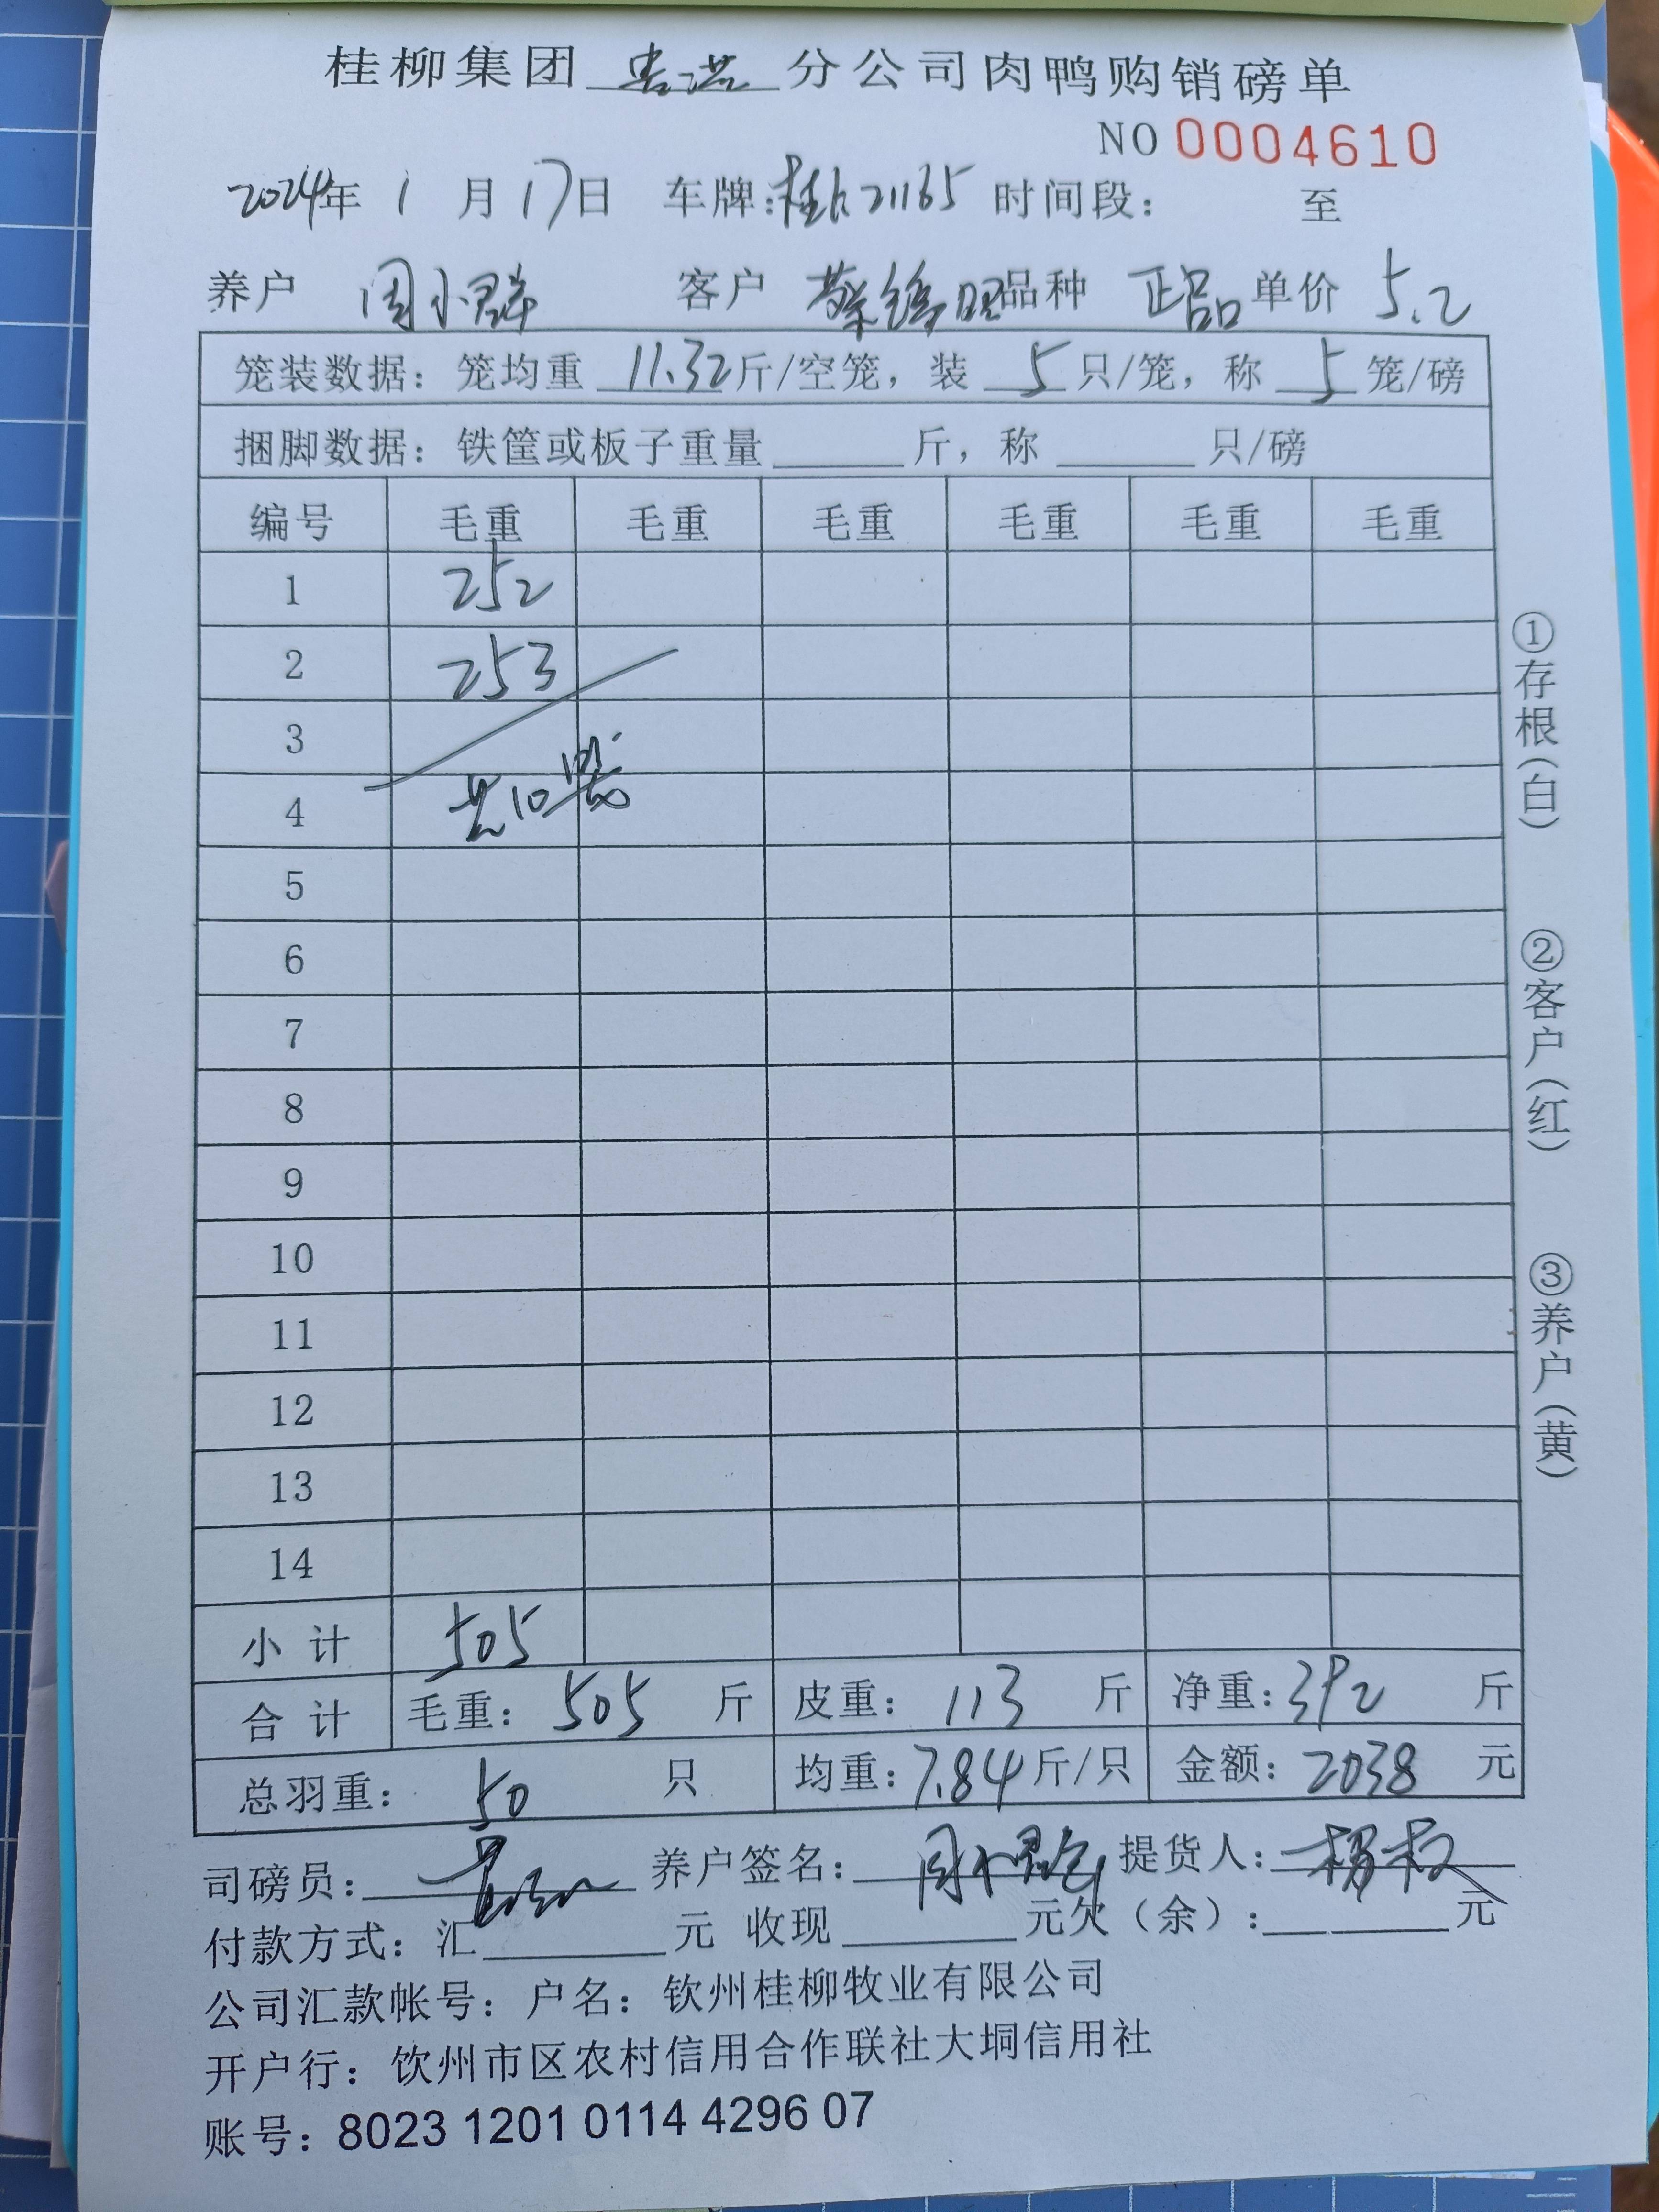 桂柳集团 贵港 分公司肉鸭购销磅单
NO 0004610
2024年 1 月 17日 车牌: 21165 时间段: 至
养户 周小群 客户 蔡锦明 品种 正品 单价 5.2
笼装数据: 笼均重 11.32 斤/空笼, 装 5 只/笼, 称 5 笼/磅
捆脚数据: 铁筐或板子重量 斤, 称 只/磅
编号 毛重 毛重 毛重 毛重 毛重 毛重
1 252
2 253
3
4 共10
5
6
7
8
9
10
11
12
13
14
小 计 505
合 计 毛重: 505 斤 皮重: 113 斤 净重: 392 斤
总羽重: 50 只 均重: 7.84 斤/只 金额: 2038 元
司磅员: 养户签名: 周小群 提货人: 杨权
付款方式: 汇 元 收现 元欠 (余): 元
公司汇款帐号: 户名: 钦州桂柳牧业有限公司
开户行: 钦州市区农村信用合作联社大垌信用社
账号: 8023 1201 0114 4296 07
①存根(白)
②客户(红)
③养户(黄)